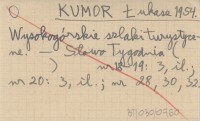 KUMOR Łukasz 1954.
Wysokogórskie szlaki turystycz-
ne. Słowo Tygodnia
) nr 18-19: 3, il.;
nr 20: 3, il.; nr 28, 30, 32